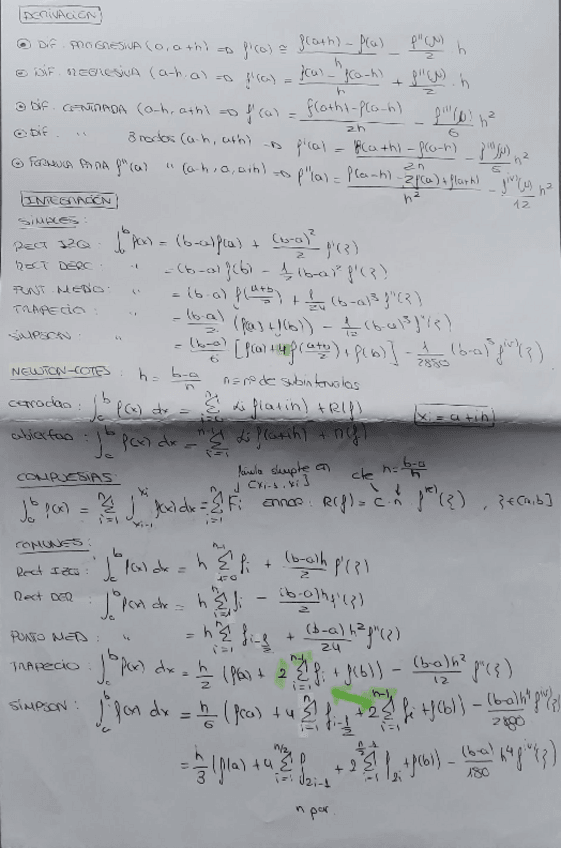 DERIVACIÓN
⊙ DIF. PROGRESIVA (a, a+h) ⇒ f'(a) ≅ (f(a+h) - f(a))/h - f''(μ)/2 · h
⊙ DIF. REGRESIVA (a-h, a) ⇒ f'(a) = (f(a) - f(a-h))/h + f''(μ)/2 · h
⊙ DIF. CENTRADA (a-h, a+h) ⇒ f'(a) = (f(a+h) - f(a-h))/2h - f'''(μ)/6 h²
⊙ DIF. " 3 nodos (a-h, a+h) ⇒ f'(a) = (f(a+h) - f(a-h))/2h - f'''(μ)/6 h²
⊙ FÓRMULA PARA f''(a) " (a-h, a, a+h) ⇒ f''(a) = (f(a-h) - 2f(a) + f(a+h))/h² - f^(iv)(μ)/12 h²
INTEGRACIÓN
SIMPLES:
RECT IZQ: ∫_a^b f(x) = (b-a)f(a) + (b-a)²/2 f'(ξ)
RECT DERC: " = (b-a)f(b) - 1/2 (b-a)² f'(ξ)
PUNT. MEDIO: " = (b-a) f((a+b)/2) + 1/24 (b-a)³ f''(ξ)
TRAPECIO: " = (b-a)/2 (f(a) + f(b)) - 1/12 (b-a)³ f''(ξ)
SIMPSON: " = (b-a)/6 [f(a) + 4f((a+b)/2) + f(b)] - 1/2880 (b-a)⁵ f^(iv)(ξ)
NEWTON-COTES: h = (b-a)/n n = nº de subintervalos
cerradas: ∫_a^b f(x) dx = Σ_{i=0}^n αi f(a+ih) + R(f) xi = a+ih
abiertas: ∫_a^b f(x) dx = Σ_{i=1}^{n-1} αi f(a+ih) + R(f)
COMPUESTAS: simple en [xi-1, xi] cte h = (b-a)/n
∫_a^b f(x) = Σ_{i=1}^n ∫_{xi-1}^{xi} f(x) dx = Σ_{i=1}^n Fi error: R(f) = C·h f^(k)(ξ), ξ∈[a,b]
COMUNES:
Rect IZQ: ∫_a^b f(x) dx = h Σ_{i=0}^{n-1} fi + (b-a)h/2 f'(ξ)
Rect DER: ∫_a^b f(x) dx = h Σ_{i=1}^n fi - (b-a)h/2 f'(ξ)
PUNTO MED: " = h Σ_{i=1}^n f_{i-1/2} + (b-a)h²/24 f''(ξ)
TRAPECIO: ∫_a^b f(x) dx = h/2 (f(a) + 2 Σ_{i=1}^{n-1} fi + f(b)) - (b-a)h²/12 f''(ξ)
SIMPSON: ∫_a^b f(x) dx = h/6 (f(a) + 4 Σ_{i=1}^n f_{i-1/2} + 2 Σ_{i=1}^{n-1} fi + f(b)) - (b-a)h⁴/2880 f^(iv)(ξ)
= h/3 (f(a) + 4 Σ_{i=1}^{n/2} f_{2i-1} + 2 Σ_{i=1}^{n/2-1} f_{2i} + f(b)) - (b-a)/180 h⁴ f^(iv)(ξ)
n par